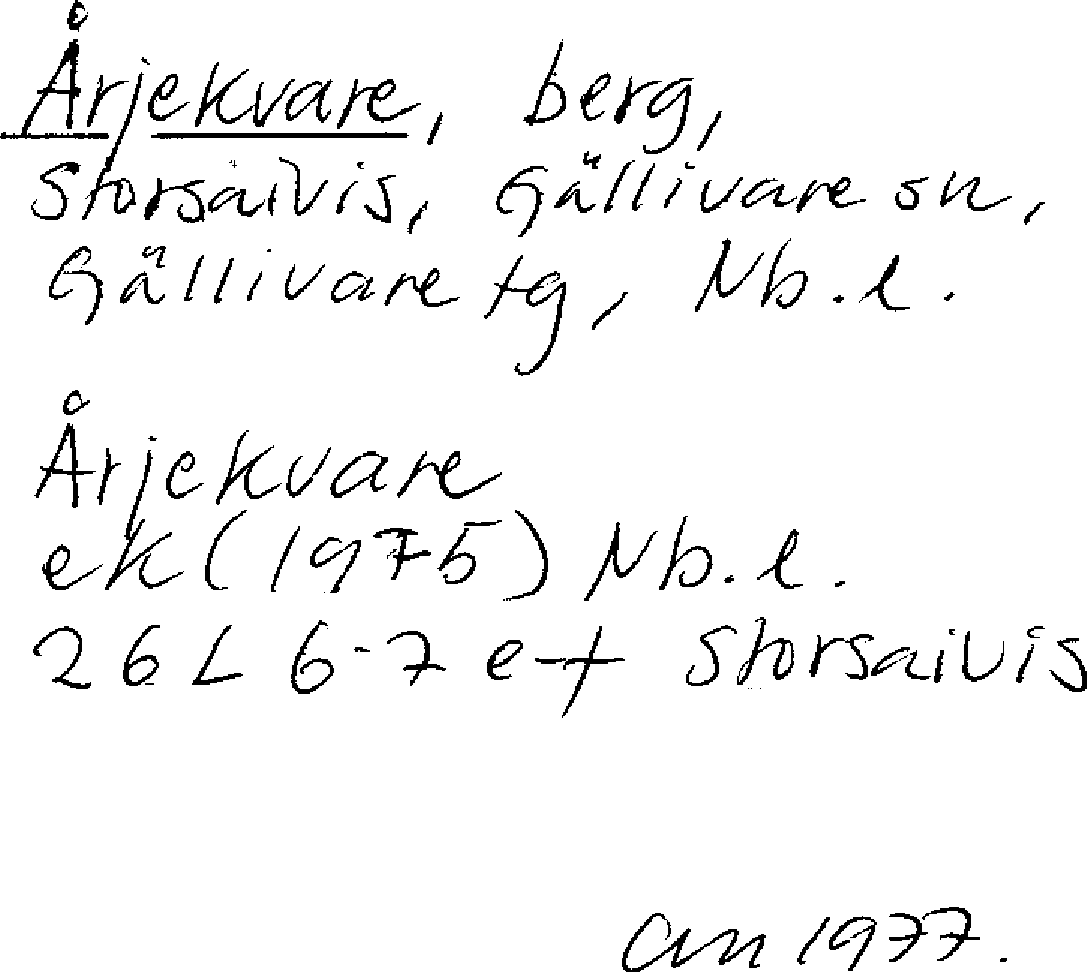 Årjekvare, berg,
Storsaivis, Gällivare sn,
Gällivare tg, Nb.l.
Årjekvare
ek (1975) Nb.l.
26 L 6-7 e-f Storsaivis
1977.